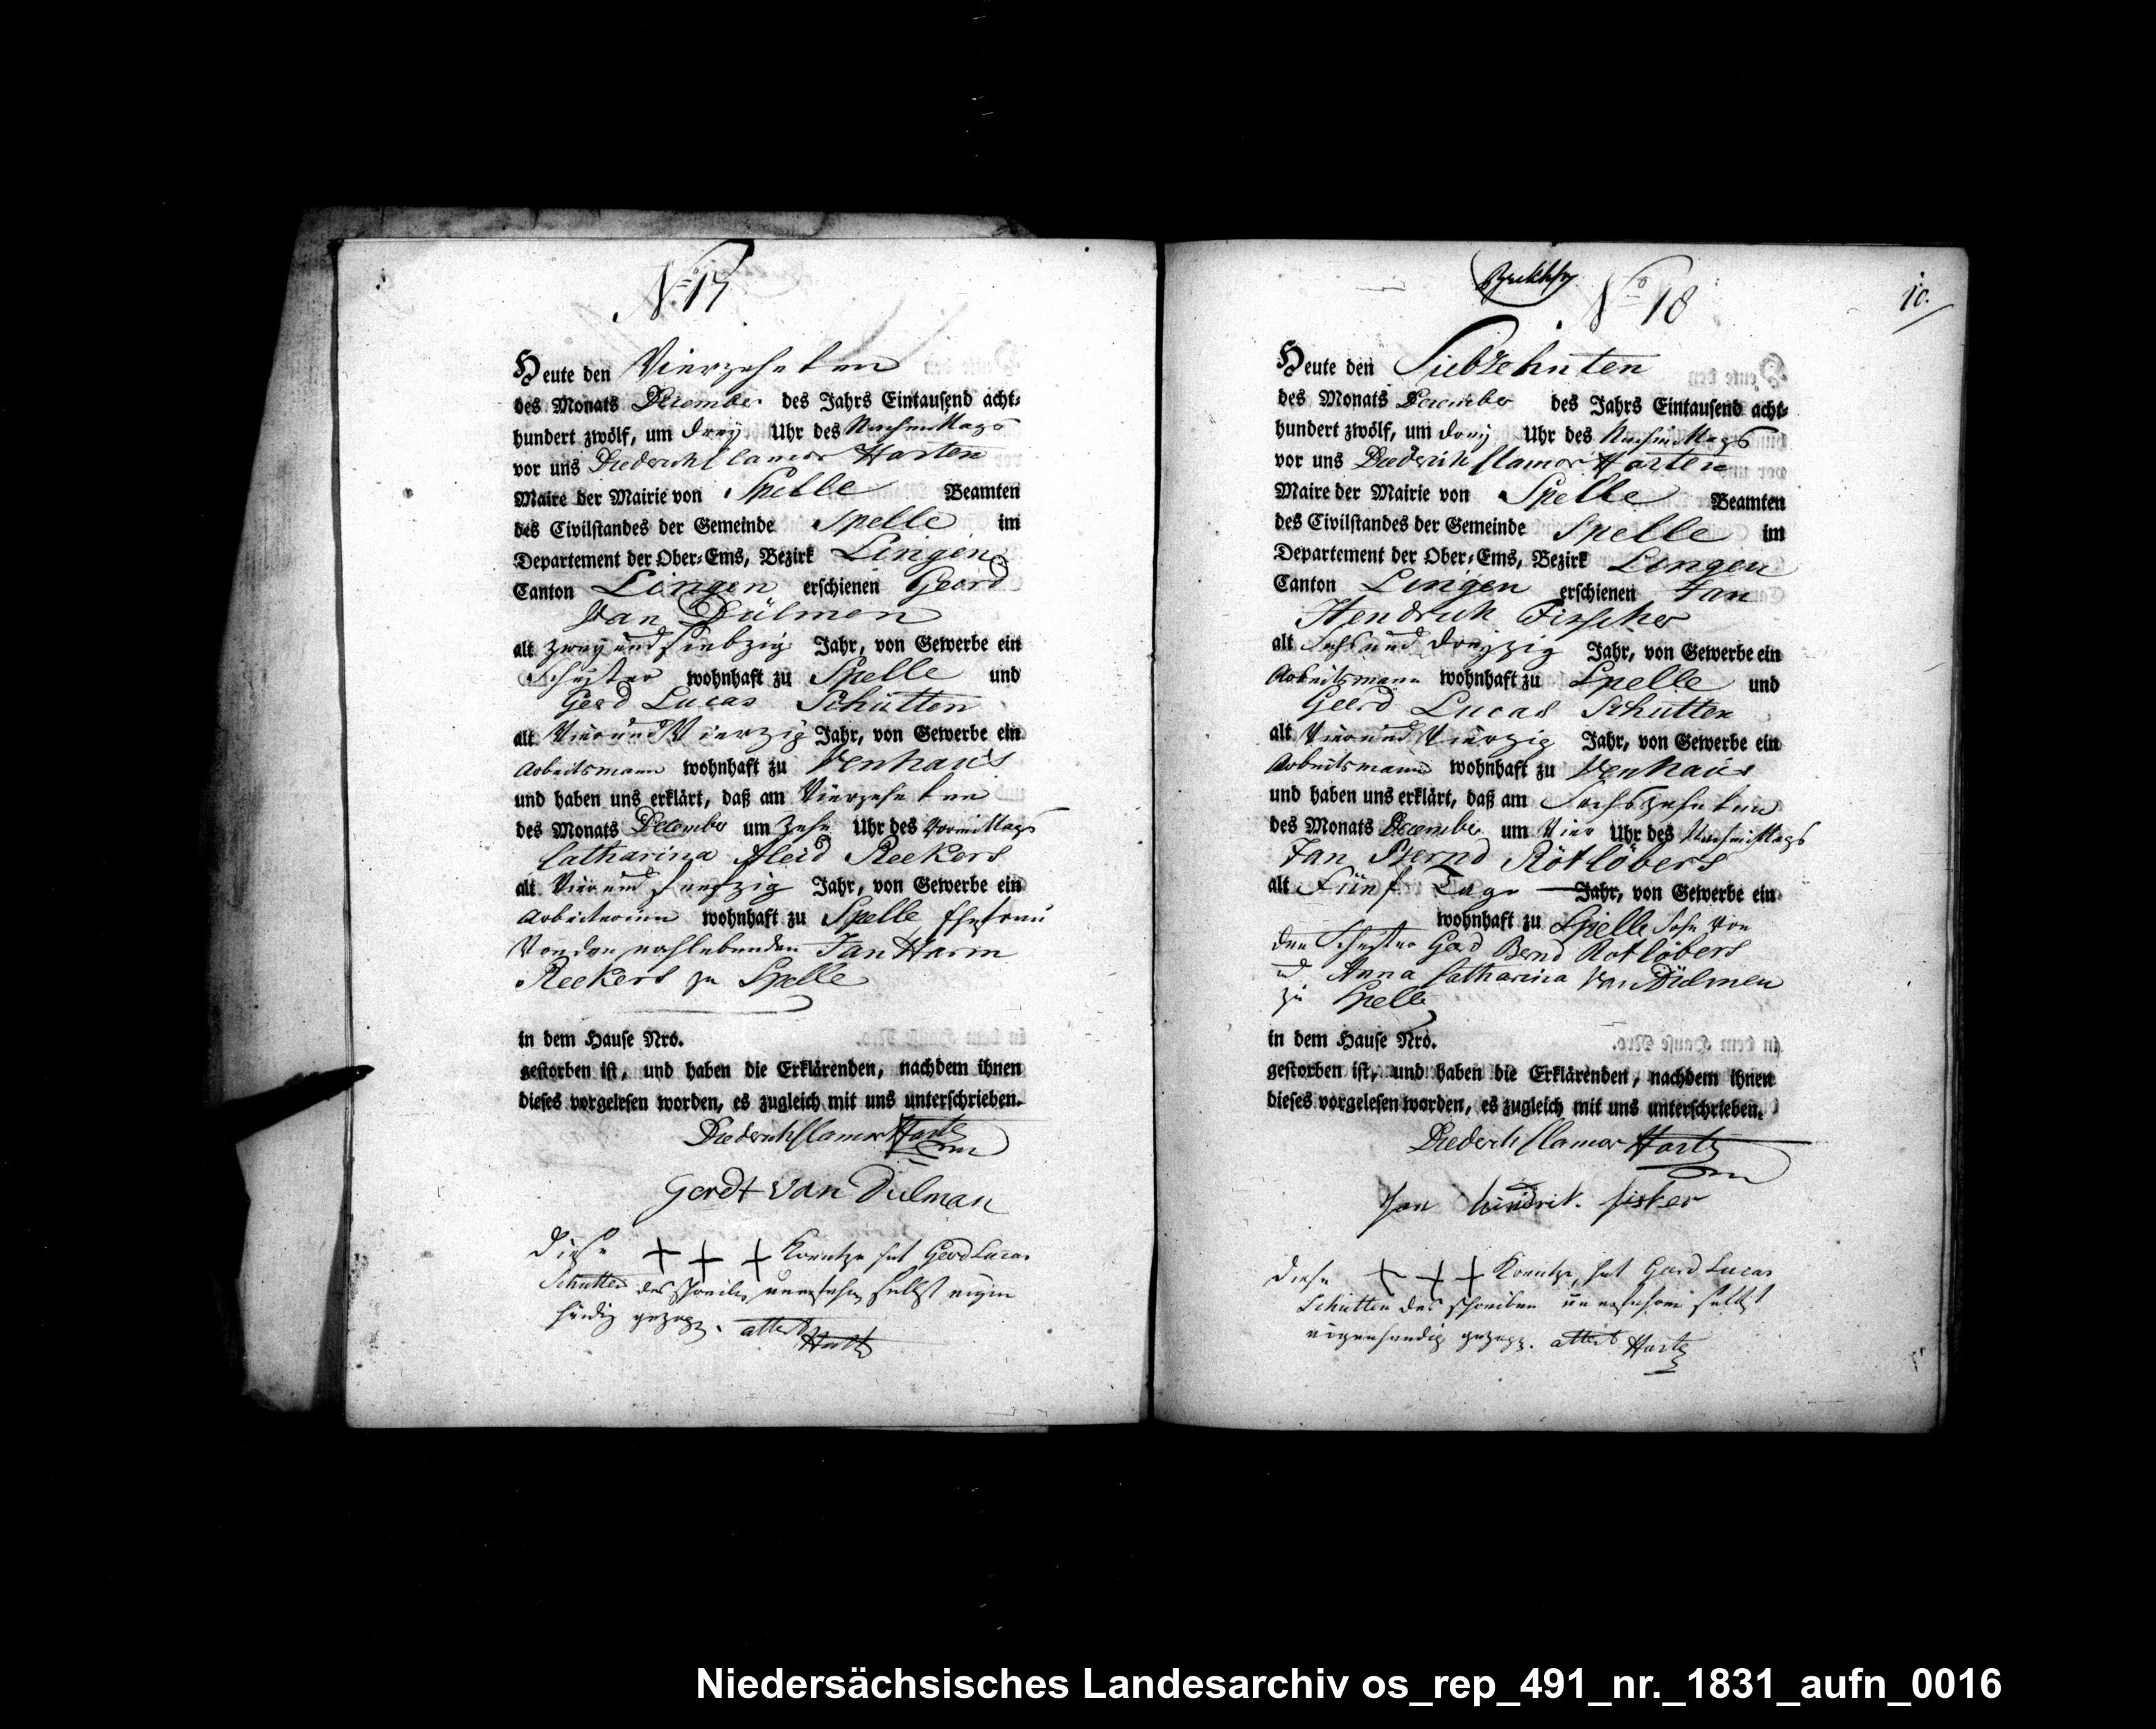 No 17
Heute den Vierzehnten
des Monats December des Jahrs Eintausend acht-
hundert zwölf, um drey Uhr des Nachmittags
vor uns Diederich Clamor Harten
Maire der Mairie von Spelle Beamten
des Civilstandes der Gemeinde Spelle im
Departement der Ober-Ems, Bezirk Lingen
Canton Lingen erschienen Geerd
Van Dülmen
alt zwey und siebzig Jahr, von Gewerbe ein
Schuster wohnhaft zu Spelle und
Gerd Lucas Schütten
alt Vier und Vierzig Jahr, von Gewerbe ein
Arbeitsmann wohnhaft zu Venhaus
und haben uns erklärt, daß am Vierzehnten
des Monats December um Zehn Uhr des Vormittags
Catharina Aleid Reekers
alt Vier und funfzig Jahr, von Gewerbe ein
Arbeiterinn wohnhaft zu Spelle Ehefrau
Von den nachlebenden Jan Harm
Reekers zu Spelle
in dem Hause Nro.
gestorben ist, und haben die Erklärenden, nachdem ihnen
dieses vorgelesen worden, es zugleich mit uns unterschrieben.
Diederich Clamor Harten
Gerdt van Dulman
Diese +++ Kreutze hat Gerd Lucas
Schutten des schreibens unerfahren selbst eigen
händig gezogen. attest
Harten
No 18
10.
Heute den Siebzehnten
des Monats December des Jahrs Eintausend acht-
hundert zwölf, um drey Uhr des Nachmittags
vor uns Diederich Clamor Harten
Maire der Mairie von Spelle Beamten
des Civilstandes der Gemeinde Spelle im
Departement der Ober-Ems, Bezirk Lingen
Canton Lingen erschienen Jan
Hendrich Fisscher
alt Sechs und dreyzig Jahr, von Gewerbe ein
Arbeitsmann wohnhaft zu Spelle und
Geerd Lucas Schütten
alt Vier und Vierzig Jahr, von Gewerbe ein
Arbeitsmann wohnhaft zu Venhaus
und haben uns erklärt, daß am Sechszehnten
des Monats December um Vier Uhr des Nachmittags
Jan Bernd Rötlöbers
alt Fünf Tage Jahr, von Gewerbe ein
wohnhaft zu Spelle Sohn Von
den Schuster Gerd Bernd Rotlöbers
und Anna Catharina Van Dülmen
zu Spelle
in dem Hause Nro.
gestorben ist, und haben die Erklärenden, nachdem ihnen
dieses vorgelesen worden, es zugleich mit uns unterschrieben.
Diederich Clamor Harten
Jan hindrik fisker
Diese +++ Kreutze hat Gerd Lucas
Schütten des schreiben unerfahren selbst
eigenhändig gezogen. attest Harten
Niedersächsisches Landesarchiv os_rep_491_nr._1831_aufn_0016